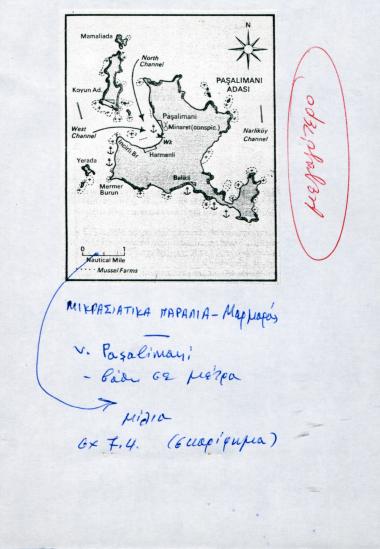 N
Mamaliada
North
Channel
PAŞALIMANI
ADASI
Koyun Ad.
Paşalimani
Minaret (conspic.)
West
Channel
Narliköy
Channel
Wk
Harmanli
Yerada
Balikli
Mermer
Burun
0 1
Nautical Mile
Mussel Farms
ΜΙΚΡΑΣΙΑΤΙΚΑ ΠΑΡΑΛΙΑ - Μαρμαράς
ν. Paşalimani
- βάθη σε μέτρα
μίλια
σχ 7.4. (σκαρίφημα)